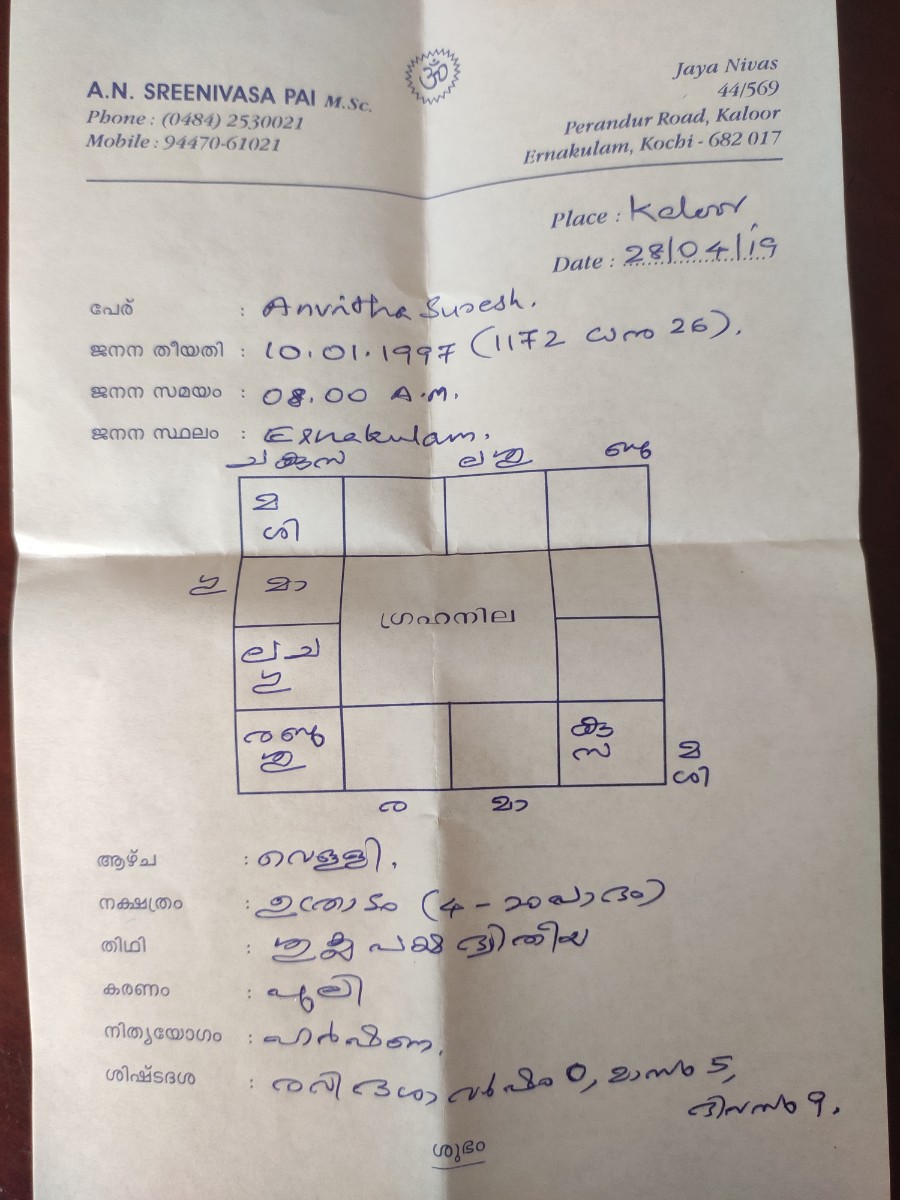 ॐ
A.N. SREENIVASA PAI M.Sc.
Phone : (0484) 2530021
Mobile : 94470-61021
Jaya Nivas
44/569
Perandur Road, Kaloor
Ernakulam, Kochi - 682 017
Place : Kaloor
Date : 28/04/19
പേര് : Anvitha Suresh.
ജനന തീയതി : 10.01.1997 (1172 ധനു 26).
ജനന സമയം : 08.00 A.M.
ജനന സ്ഥലം : Ernakulam.
ച കു സ ല ശു ണ്ടു
മ
ശി
ഗു മാ
ഗ്രഹനില
ല ച
ഗു
ര ണ്ടു
ശു
കു
സ
മ
ശി
ര മാ
ആഴ്ച : വെള്ളി.
നക്ഷത്രം : ഉത്രാടം (4-ാം പാദം)
തിഥി : ശുക്ല പക്ഷ ദ്വിതീയ
കരണം : പുലി
നിത്യയോഗം : ഹർഷണ.
ശിഷ്ടദശ : രവി ദശാ വർഷം 0, മാസം 5,
ദിവസം 9.
ശുഭം